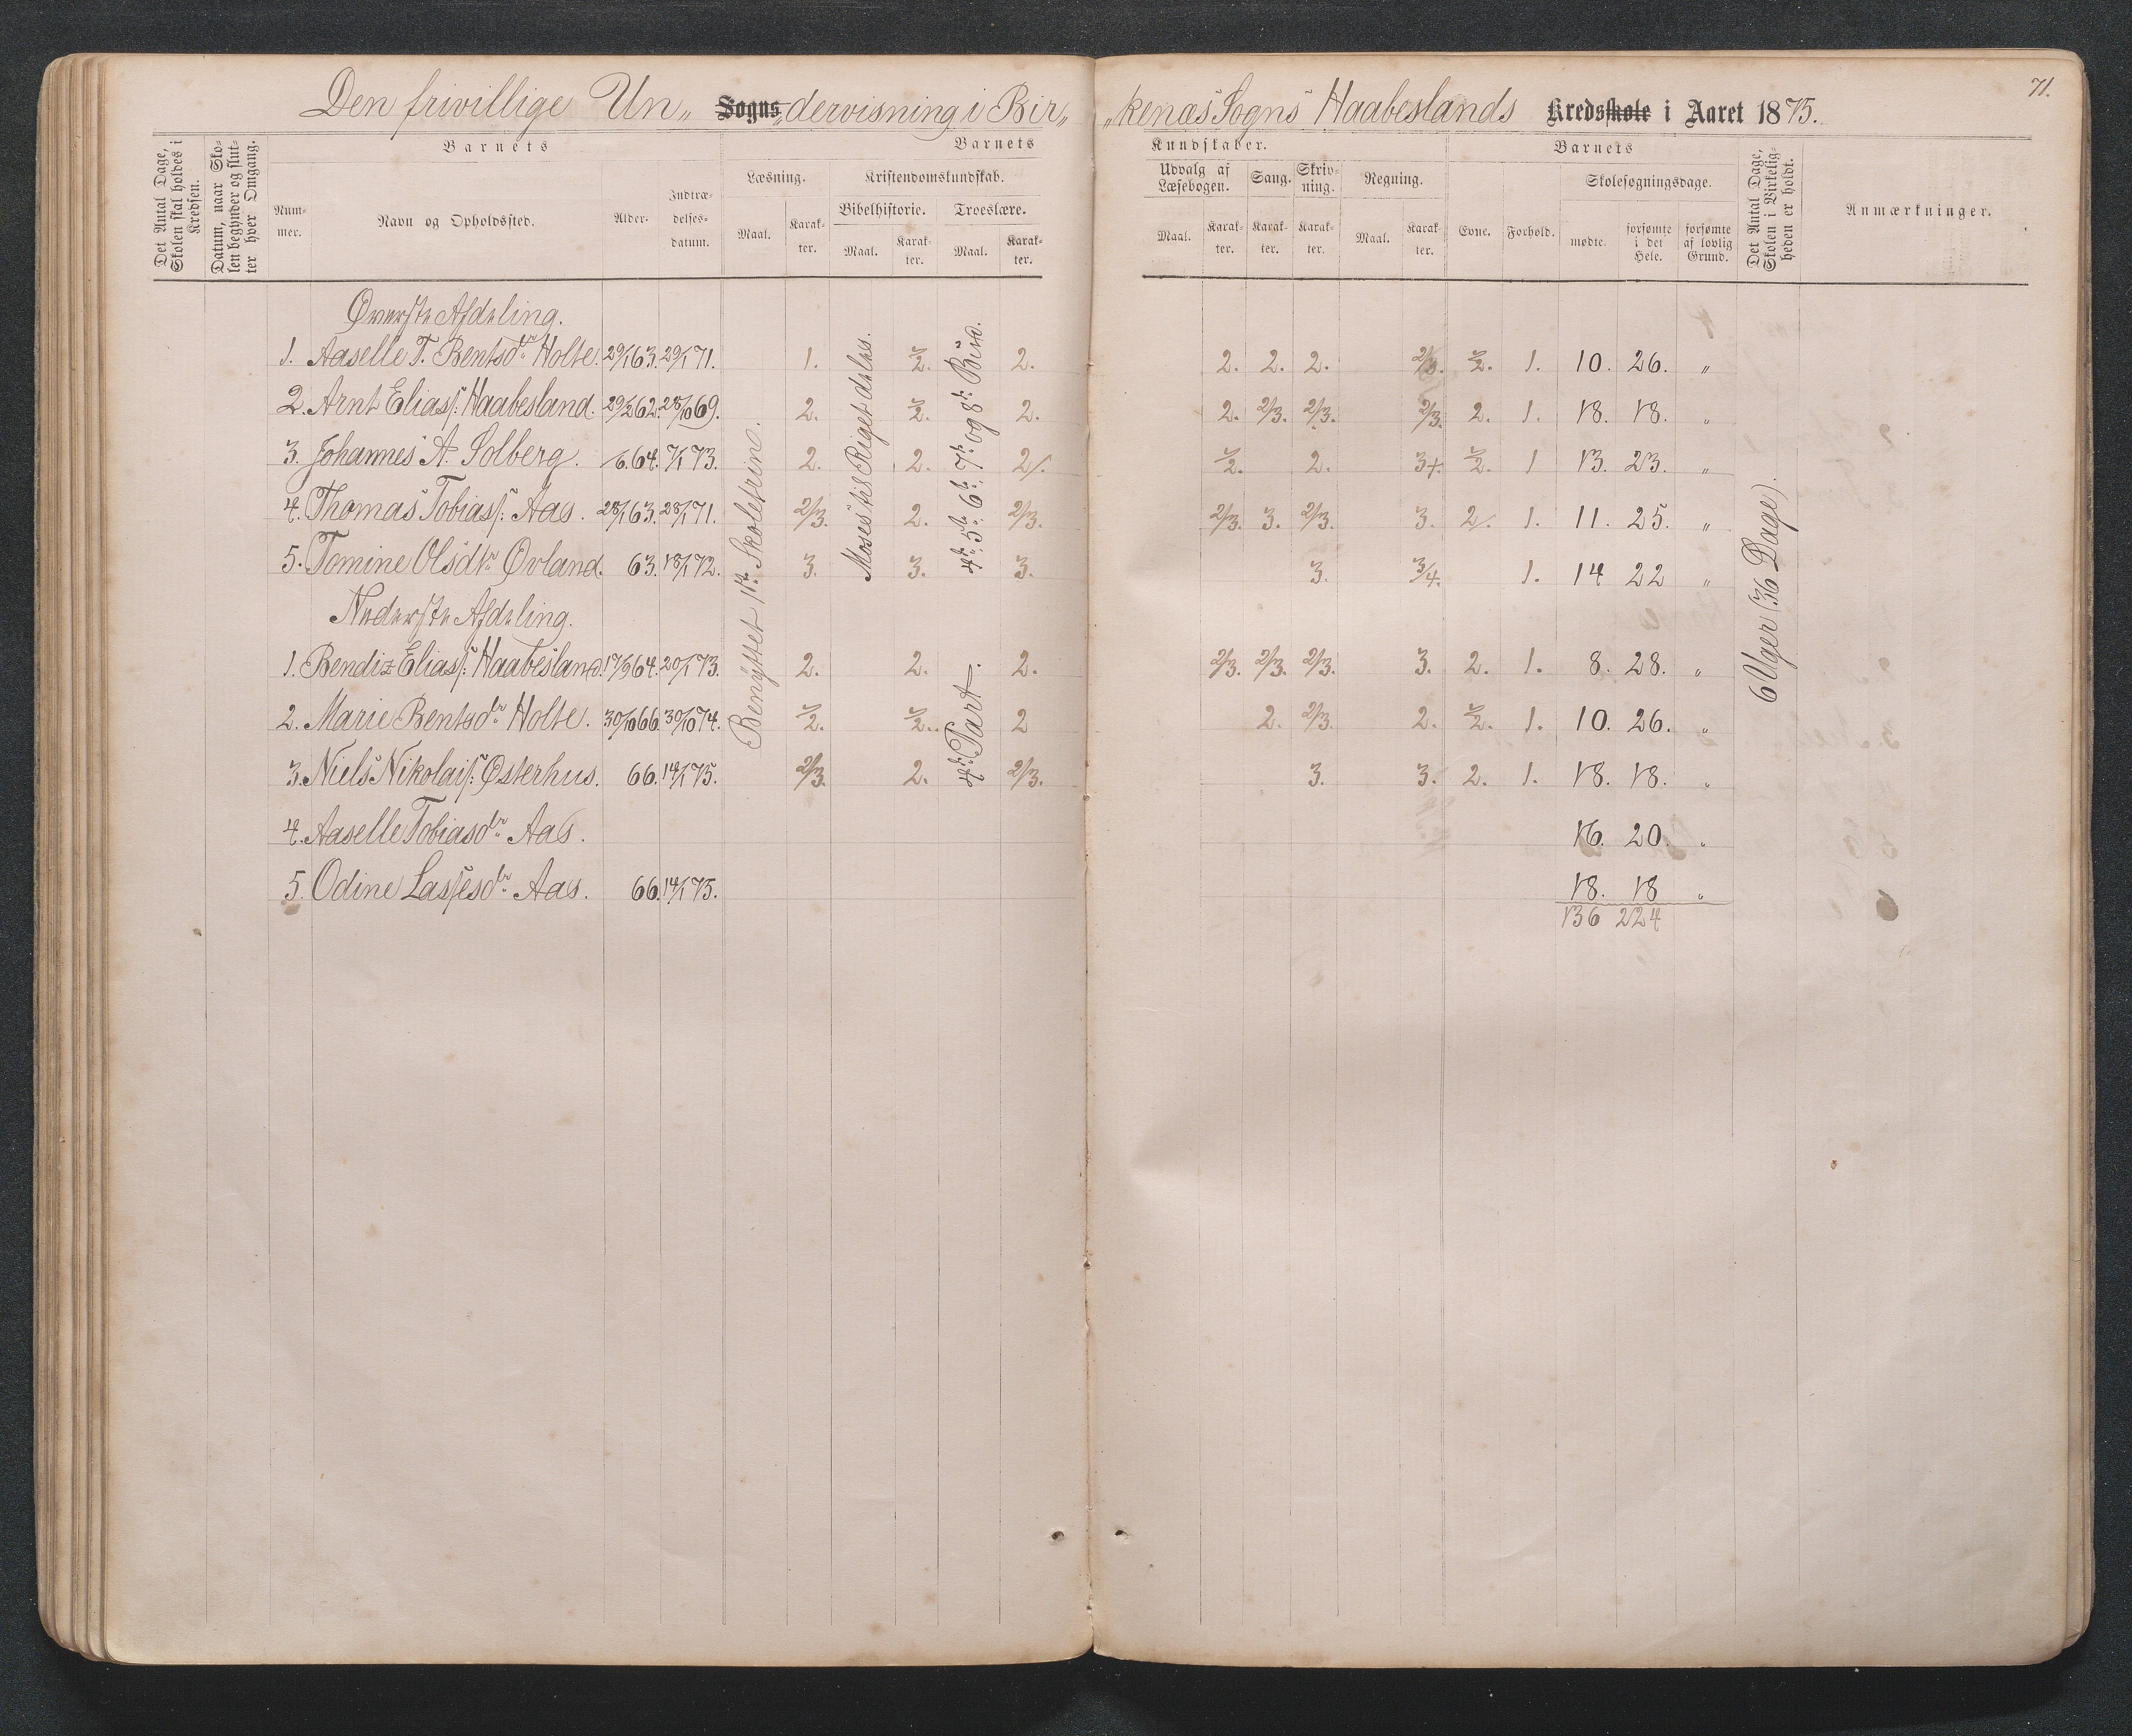 71.
Den frivillige Un„ Sogns „dervisning i Bir„ „kenæs Sogns Haabeslands Kredsskole i Aaret 1875.
Det Antal Dage, Skolen skal holdes i Kredsen.
Datum, naar Skolen begynder og slutter hver Omgang.
Barnets
Nummer.
Navn og Opholdssted.
Alder.
Indtrædelsesdatum.
Barnets Kundskaber.
Læsning.
Maal. Karakter.
Kristendomskundskab.
Bibelhistorie. Troeslære.
Maal. Karakter. Maal. Karakter.
Udvalg af Læsebogen. Sang. Skrivning. Regning.
Maal. Karakter. Karakter. Karakter. Maal. Karakter.
Barnets
Evne. Forhold.
Skolesøgningsdage.
mødte. forsømte i det Hele. forsømte af lovlig Grund.
Det Antal Dage, Skolen i Virkeligheden er holdt.
Anmærkninger.
Øverste Afdeling.
1. Aaselle T. Bentsdtr Holte. 29/1 63. 29/1 71. 1. 1/2. 2. 2. 2. 2. 2/3. 1/2. 1. 10. 26. „
2. Arnt Eliass: Haabesland. 29/2 62. 28/10 69. 2. 1/2. 2. 2. 2/3. 2/3. 2/3. 2. 1. 18. 18. „
3. Johannes A. Solberg. /6. 64. 7/1 73. 2. 2. 2/. 1/2. 2. 3+. 1/2. 1 13. 23. „
4. Thomas Tobiass: Aas. 28/1 63. 28/1 71. 2/3. 2. 2/3. 2/3. 3. 2/3. 3. 2/. 1. 11. 25. „
5. Tomine Olsdtr Øvland. 63. 18/1 72. 3. 3. 3. 3. 3/4. 1. 14 22 „
Nederste Afdeling.
1. Bendix Eliass: Haabesland. 17/9 64. 20/1 73. 2. 2. 2. 2/3. 2/3. 2/3. 3. 2. 1. 8. 28. „
2. Marie Bentsdtr Holte. 30/10 66. 30/10 74. 1/2. 1/2. 2 2. 2/3. 2. 1/2. 1. 10. 26. „
3. Niels Nikolais: Østerhus. 66. 14/1 75. 2/3. 2. 2/3. 3. 3. 2. 1. 18. 18. „
4. Aaselle Tobiasdtr Aas. 16. 20. „
5. Odine Lassesdtr Aas. 66. 14/1 75. 18. 18 „
136 224
Benyttet 1ste Skoletrin.
Moses til Riget deles.
4de 5te 6te 7de og 8de Bud.
4de Part.
6 Uger (36 Dage).